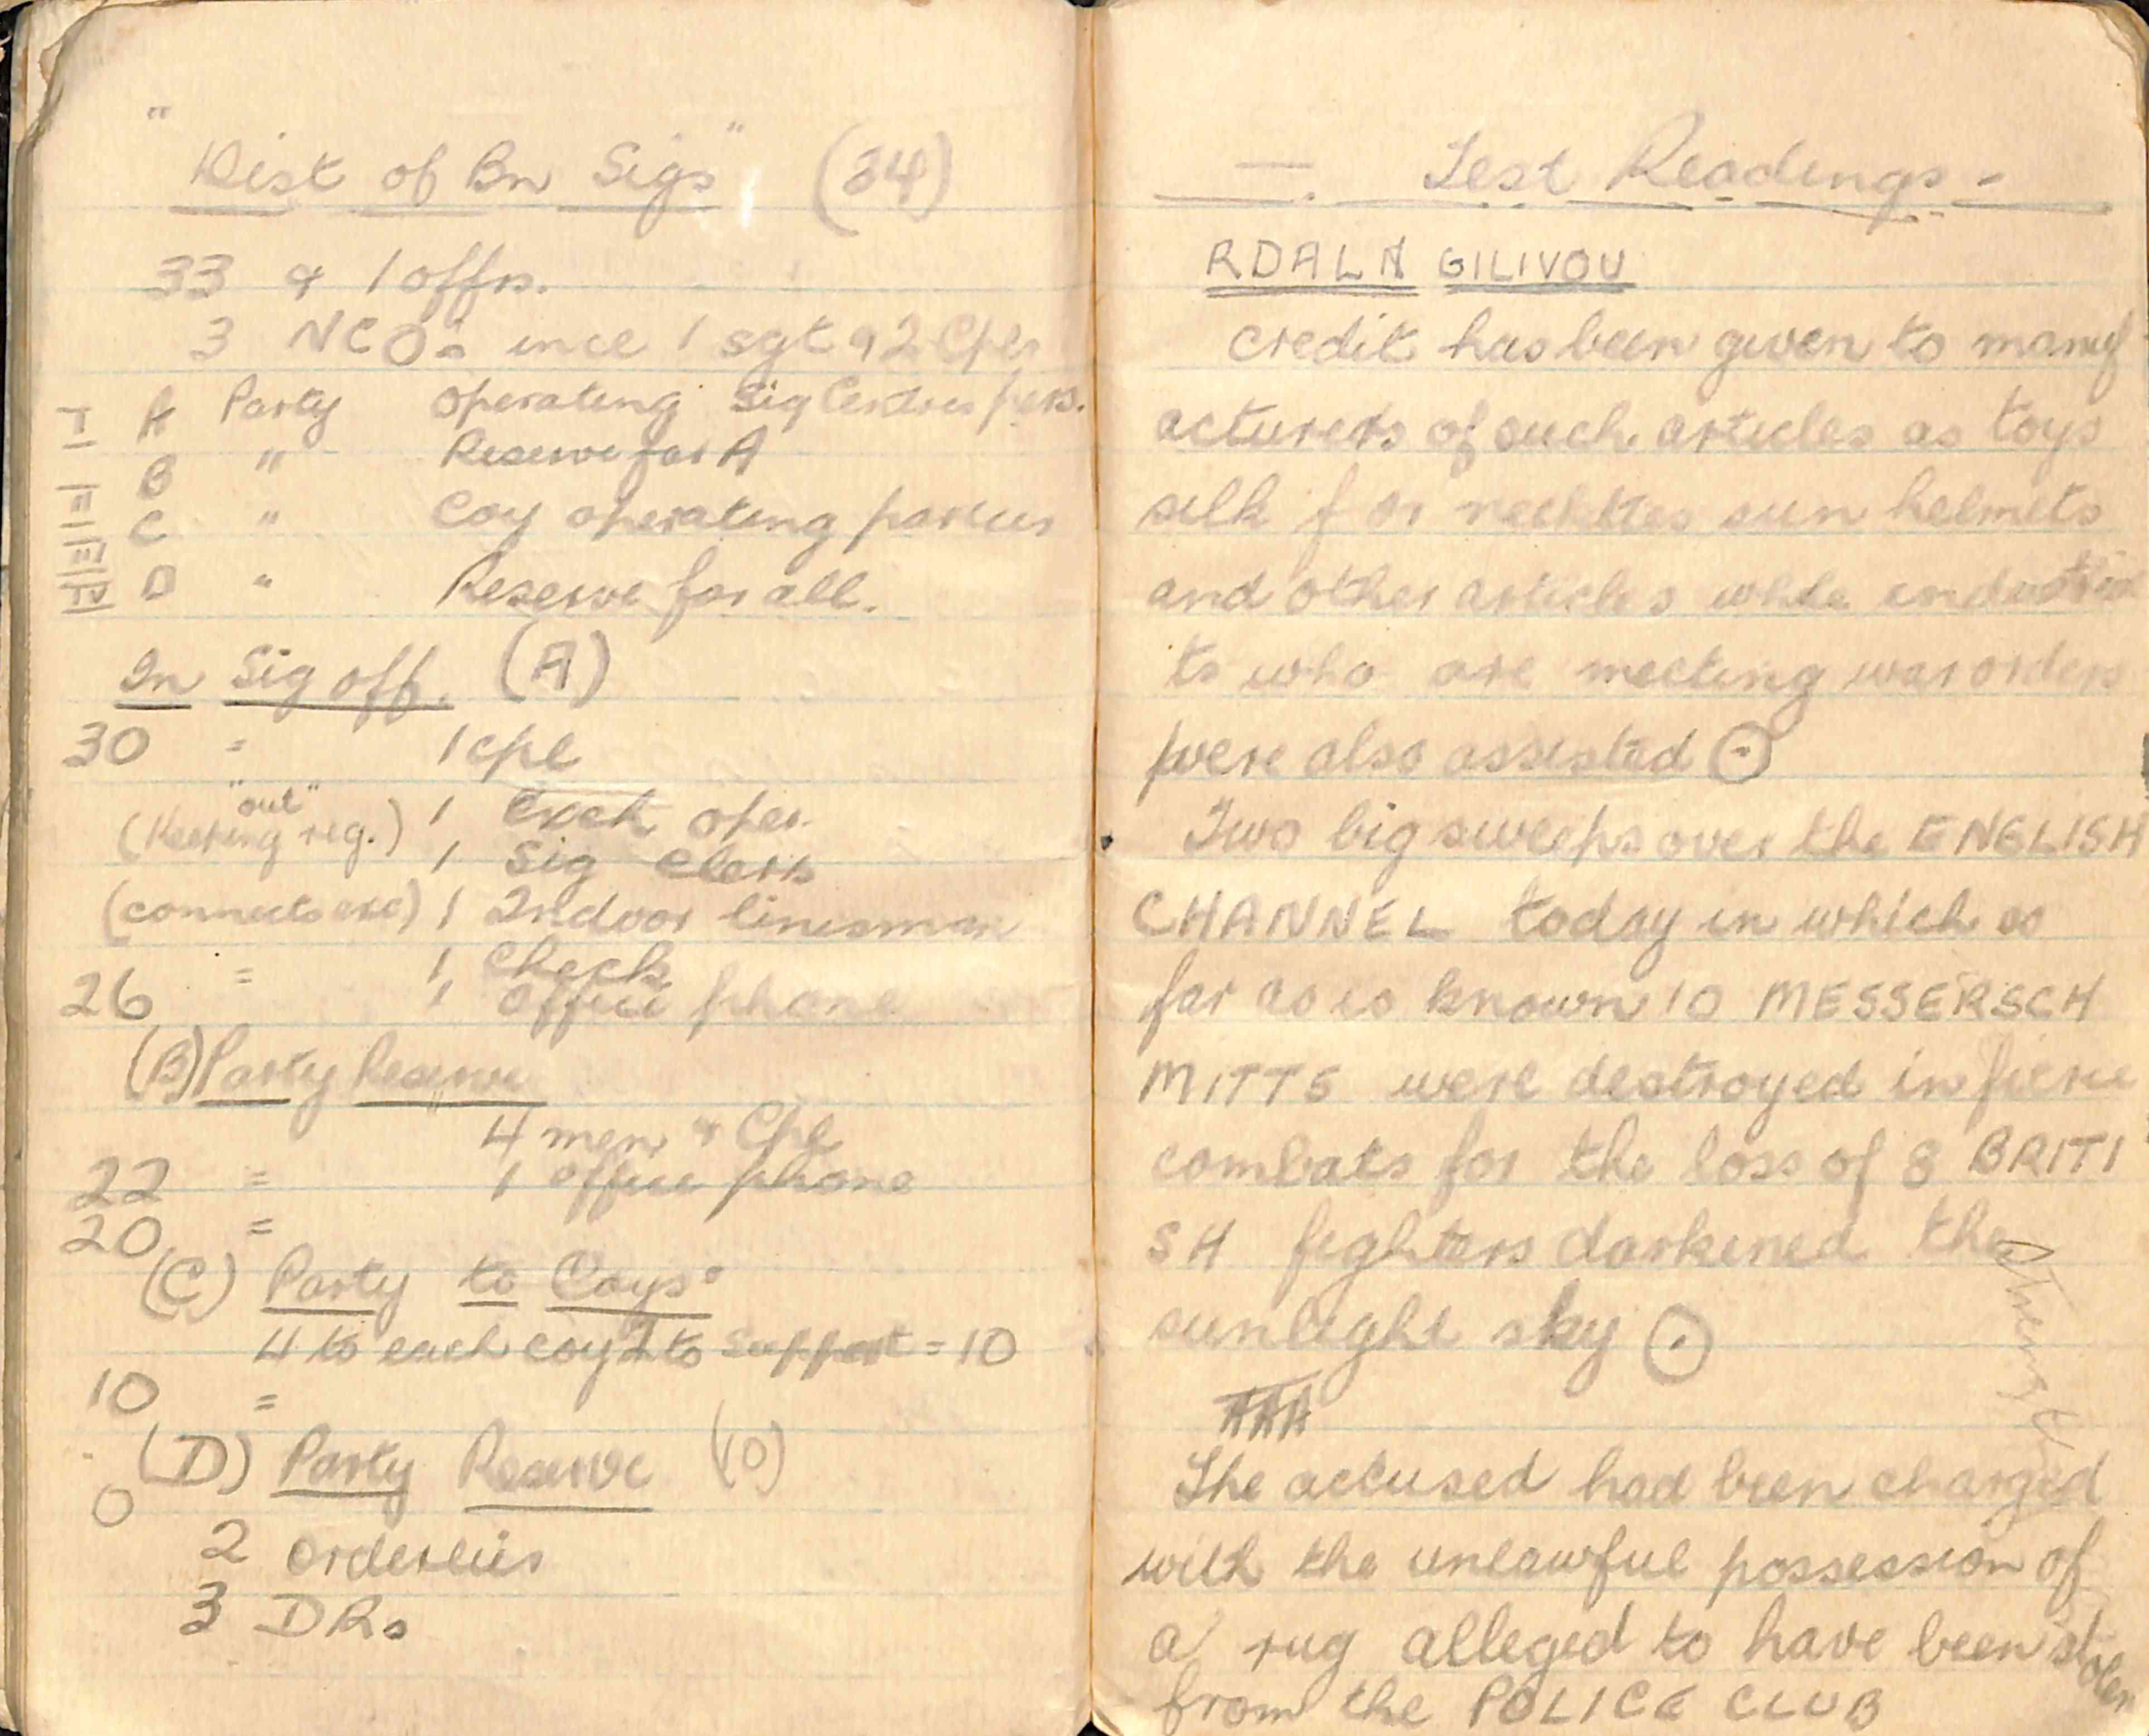 "Dist of Bn Sigs" (34)
33 & 1 offrs.
3 NCO's incl 1 sgt & 2 Cpls
I A Party operating Sig Centres pers.
B " Reserve for A
II C " Coy operating parties
III IV D " Reserve for all.
In Sig off. (A)
30 = 1 cpl
"out"
(Keeping reg.) 1 Exch oper.
1 Sig Clerk
(connects exc) 1 Indoor linesman
1 Check
26 = 1 office phone
(B) Party Reserve
4 men & Cpl
22 = 1 office phone
20 =
(C) Party to Coys
4 to each coy 2 to support = 10
10 =
(D) Party Reserve (10)
0
2 orderlies
3 DRs
Test Readings -
RDALN GILIVOU
credit has been given to manuf
acturers of such articles as toys
silk f or neckties sun helmets
and other articles while industrial
ts who are meeting war orders
were also assisted ⊙
Two big sweeps over the ENGLISH
CHANNEL today in which as
far as is known 10 MESSERSCH
MITTS were destroyed in fierce
combats for the loss of 8 BRITI
SH fighters darkened the
sunlight sky ⊙
AAA
The accused had been charged
with the unlawful possession of
a rug alleged to have been stolen
from the POLICE CLUB